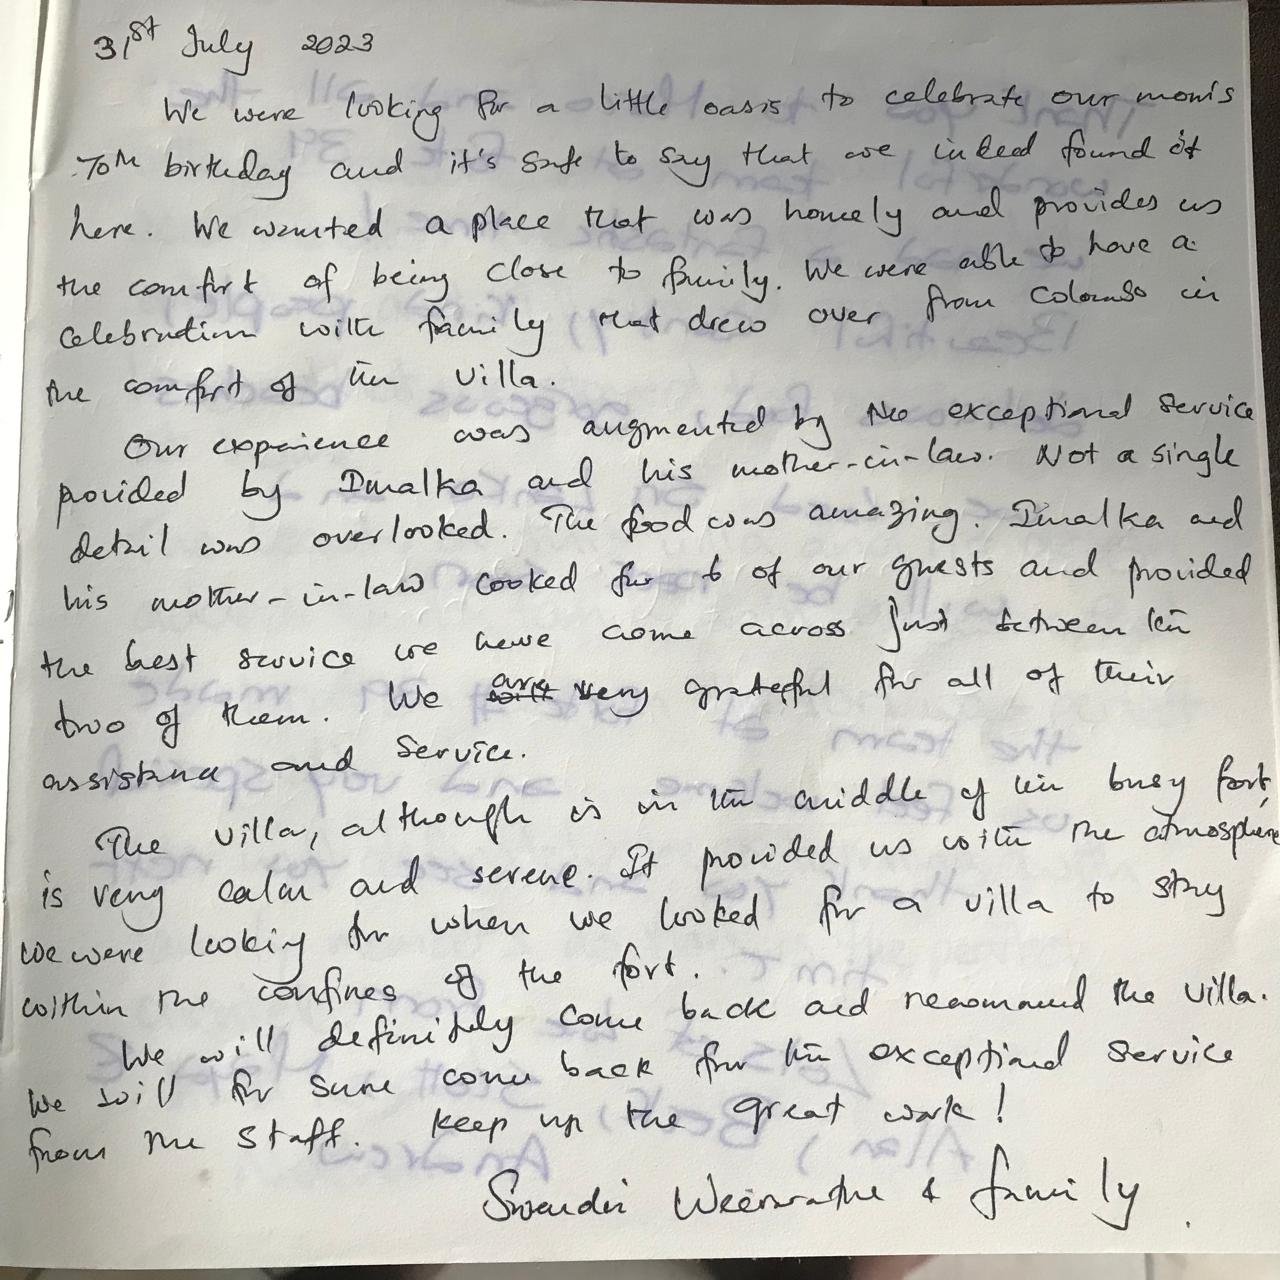 31st July 2023
We were looking for a little oasis to celebrate our mom's
70th birthday and it's safe to say that we indeed found it
here. We wanted a place that was homely and provides us
the comfort of being close to family. We were able to have a
celebration with family that drew over from Colombo in
the comfort of the villa.
Our experience was augmented by the exceptional service
provided by Dmalka and his mother-in-law. Not a single
detail was overlooked. The food was amazing. Dmalka and
his mother-in-law cooked for 6 of our guests and provided
the best service we have come across just between the
two of them. We are very grateful for all of their
assistance and service.
The villa, although is in the middle of the busy fort,
is very calm and serene. It provided us with the atmosphere
we were looking for when we looked for a villa to stay
within the confines of the fort.
We will definitely come back and recommend the villa.
We will for sure come back for the exceptional service
from the staff. Keep up the great work!
& family.